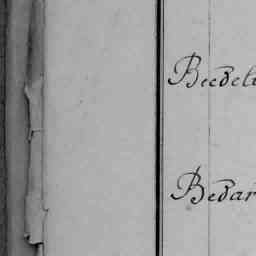 Beedel
Bedar